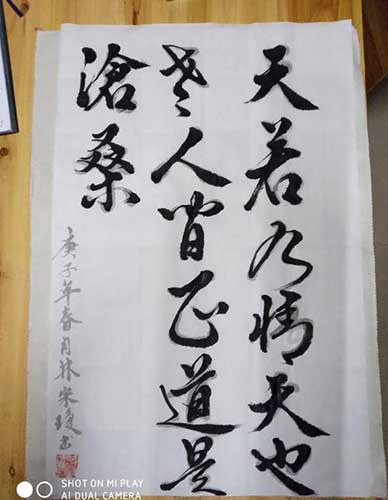 天若有情天也
老人间正道是
滄桑
庚子年春月林荣书
SHOT ON MI PLAY
AI DUAL CAMERA